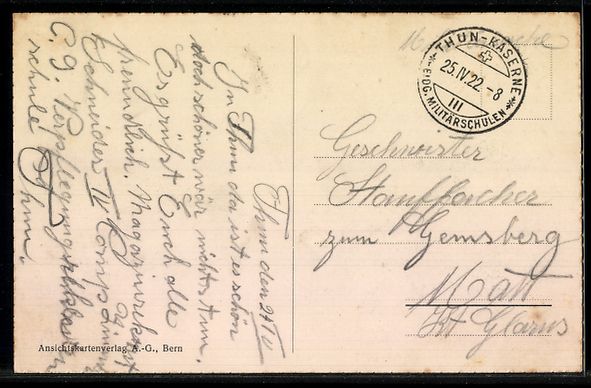 Thun den 24 IV
In Thun da ist es schön
doch schöner wär nichts tun.
Es grüßt Euch alle
freundlich. Magaziner
Schneider IV Komp.
schule Thun.
Ansichtskartenverlag A.-G., Bern
THUN-KASERNE
25.IV.22.-8
III
EIDG. MILITÄRSCHULEN
Geschwister
Stauffacher
zum Gemsberg
Matt
Kt Glarus